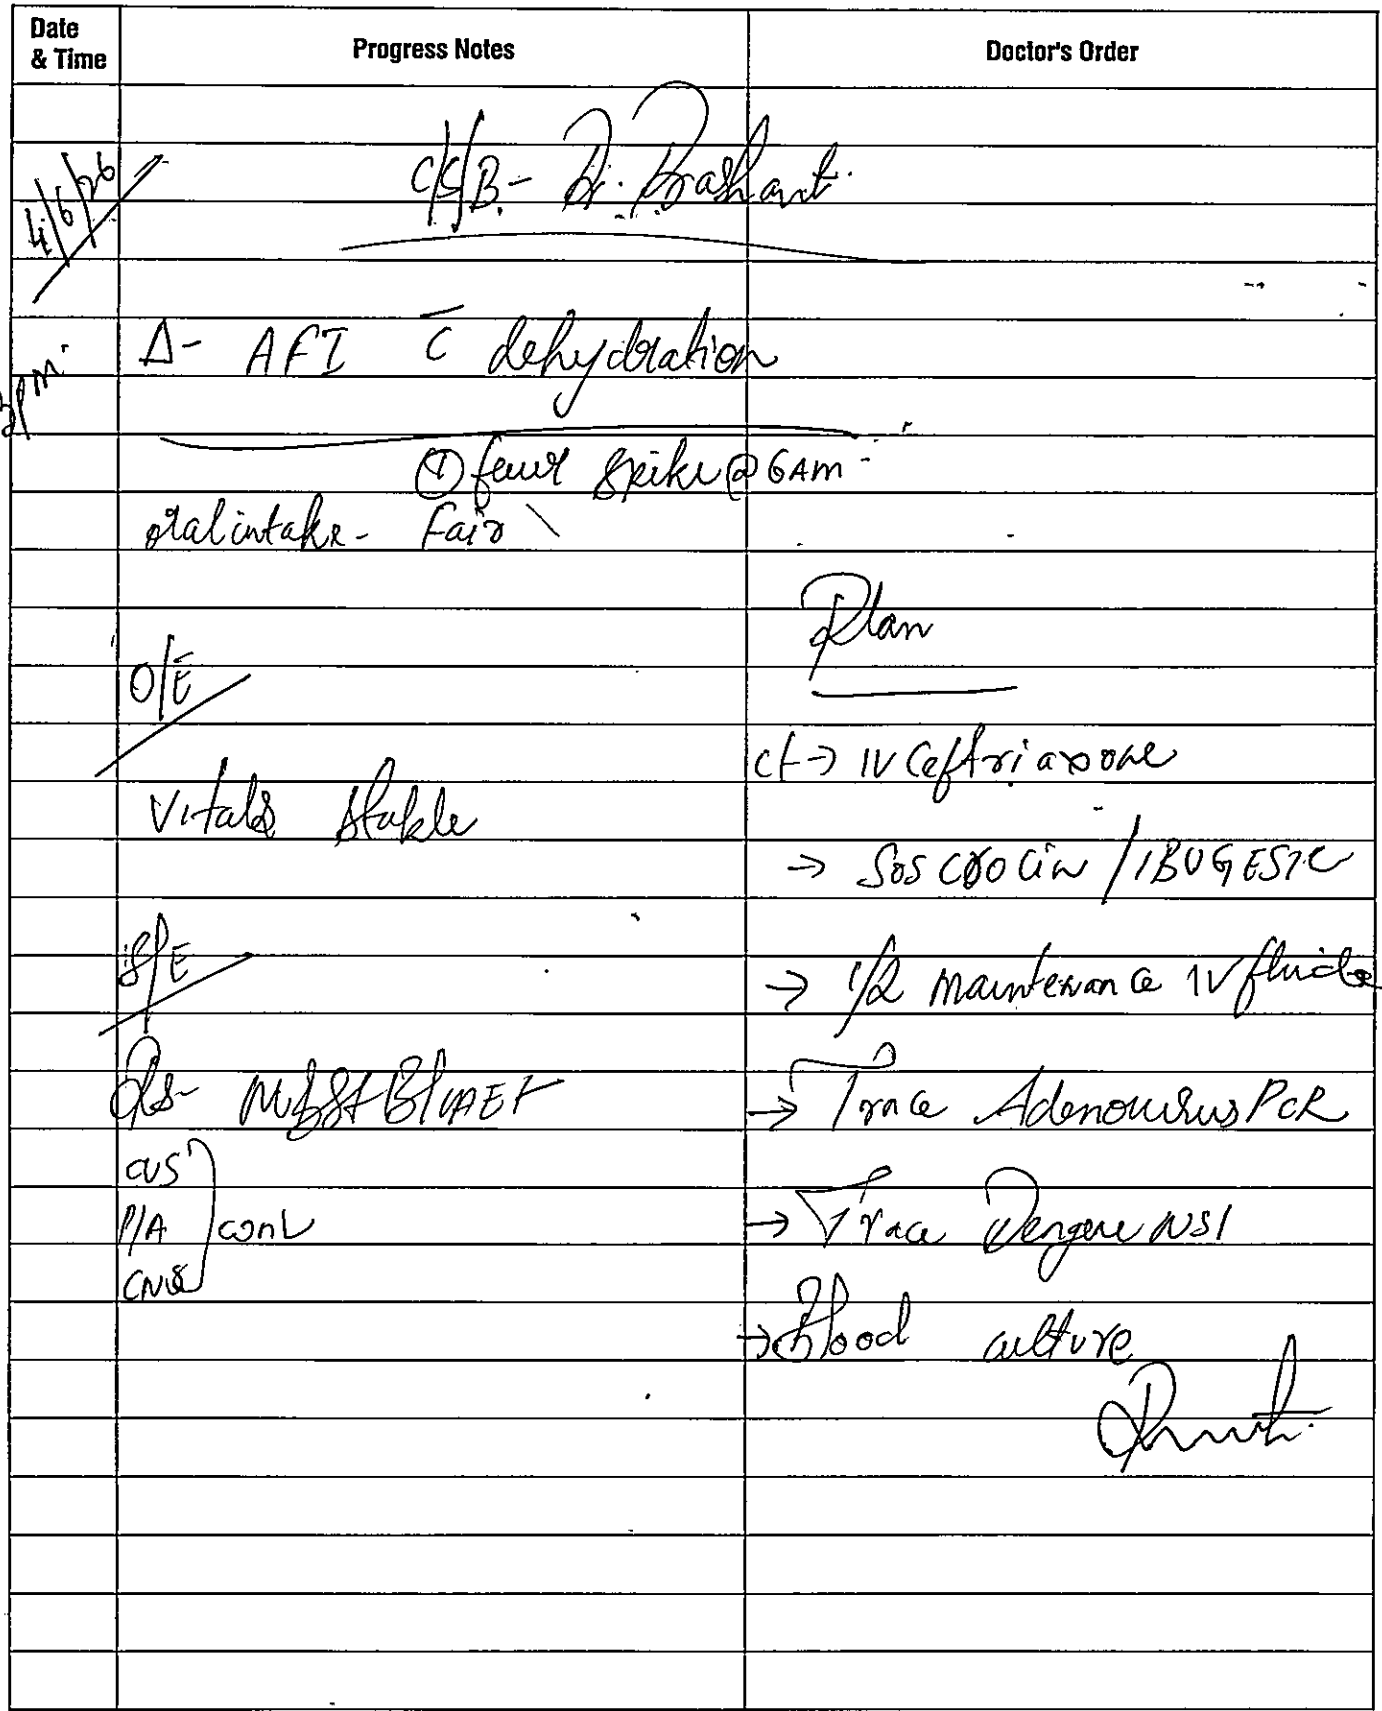 Date & Time Progress Notes Doctor's Order
4/6/26 C/S/B - Dr. Prashant
Δ- AFI c̄ dehydration
pm.
① fever spike @ 6AM
oral intake - Fair
Plan
O/E
ct → IV Ceftriaxone
Vitals stable
→ SOS Crocin / IBUGESIC
S/E
→ 1/2 maintenance IV fluids
RS-
→ Trace Adenovirus PCR
CVS
P/A
→ Trace Dengue NS1
CNS
→ Blood culture